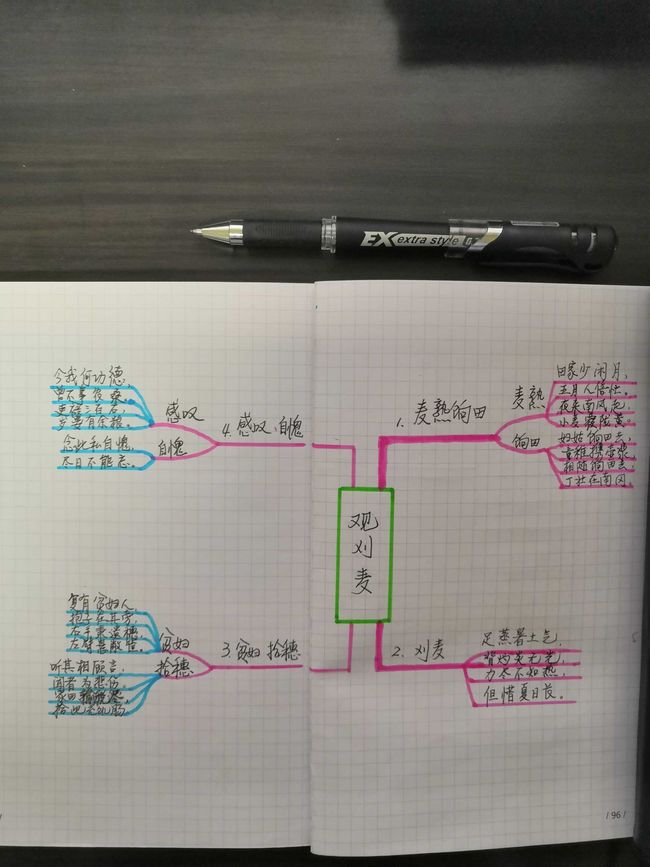 EX extra style
观
刈
麦
1. 麦熟饷田
麦熟
田家少闲月,
五月人倍忙。
夜来南风起,
小麦覆陇黄。
饷田
妇姑饷田去,
童稚携壶浆,
相随饷田去,
丁壮在南冈。
2. 刈麦
足蒸暑土气,
背灼炎天光,
力尽不知热,
但惜夏日长。
3. 贫妇拾穗
贫妇
拾穗
复有贫妇人,
抱子在其旁,
右手秉遗穗,
左臂悬敝筐。
听其相顾言,
闻者为悲伤。
家田输税尽,
拾此充饥肠。
4. 感叹·自愧
感叹
自愧
今我何功德,
曾不事农桑,
吏禄三百石,
岁晏有余粮。
念此私自愧,
尽日不能忘。
/ 96 /